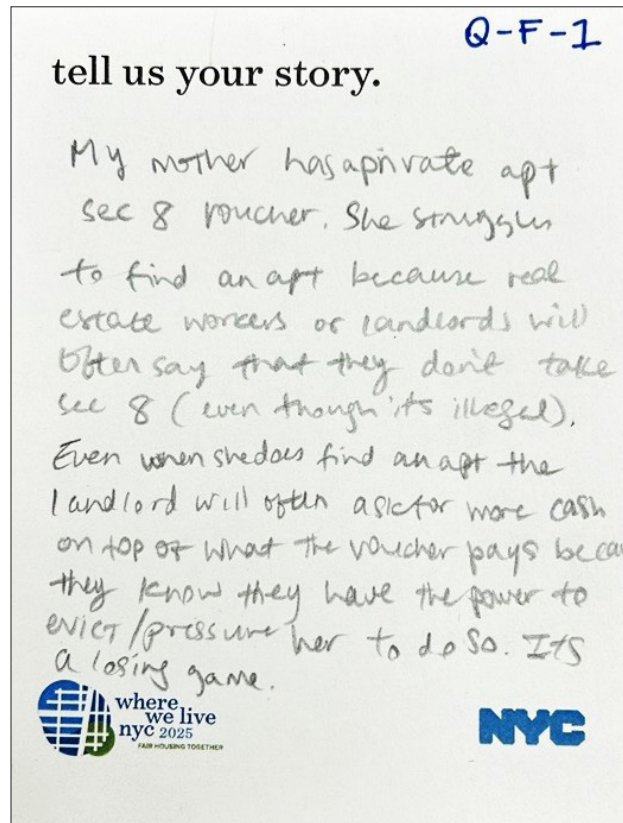 Q-F-1
tell us your story.
My mother has a private apt
sec 8 voucher. She struggles
to find an apt because real
estate workers or landlords will
often say that they don't take
sec 8 (even though its illegal).
Even when she does find an apt the
landlord will often ask for more cash
on top of what the voucher pays becau
they know they have the power to
evict/pressure her to do so. Its
a losing game.
where
we live
nyc 2025
FAIR HOUSING TOGETHER
NYC